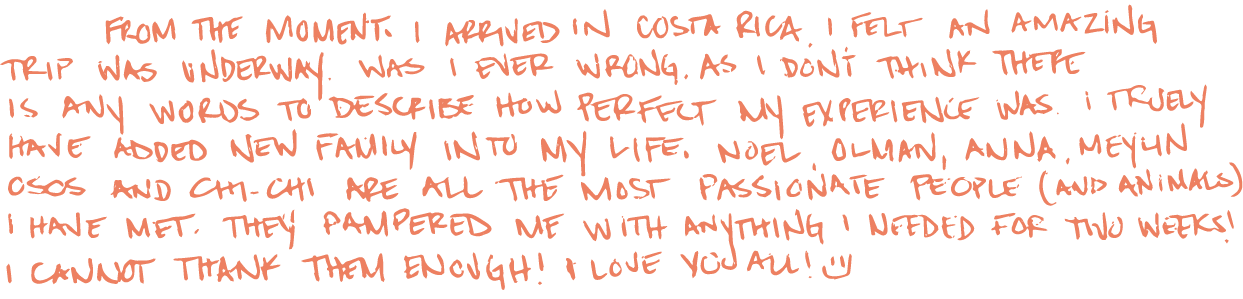 FROM THE MOMENT. I ARRIVED IN COSTA RICA, I FELT AN AMAZING
TRIP WAS UNDERWAY. WAS I EVER WRONG. AS I DON'T THINK THERE
IS ANY WORDS TO DESCRIBE HOW PERFECT MY EXPERIENCE WAS. I TRUELY
HAVE ADDED NEW FAMILY INTO MY LIFE. NOEL, OLMAN, ANNA, MEYLIN
OSOS AND CHI-CHI ARE ALL THE MOST PASSIONATE PEOPLE (AND ANIMALS)
I HAVE MET. THEY PAMPERED ME WITH ANYTHING I NEEDED FOR TWO WEEKS!
I CANNOT THANK THEM ENOUGH! I LOVE YOU ALL! :)